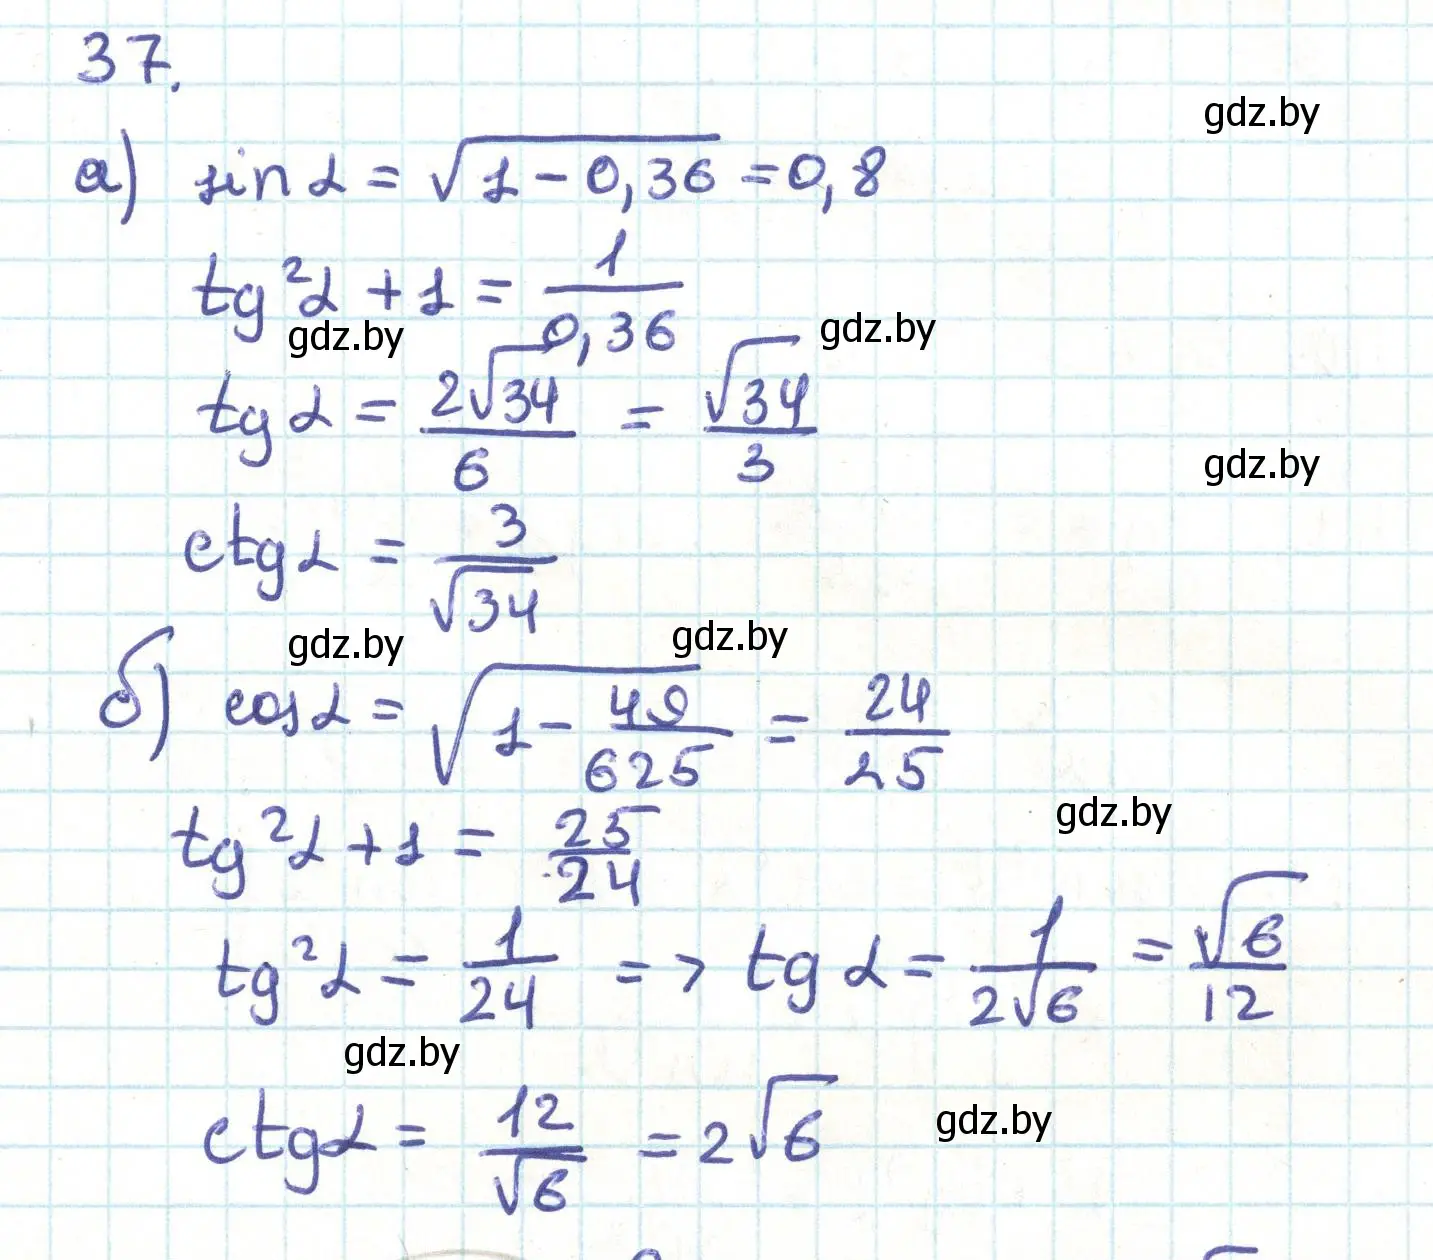 37.
gdz.by
а) sin α = √(1 − 0,36) = 0,8
tg²α + 1 = 1/0,36
gdz.by gdz.by
tg α = 2√34/6 = √34/3
gdz.by
ctg α = 3/√34
gdz.by gdz.by
б) cos α = √(1 − 49/625) = 24/25
gdz.by
tg²α + 1 = 25/24
tg²α = 1/24 => tg α = 1/2√6 = √6/12
gdz.by
ctg α = 12/√6 = 2√6
gdz.by